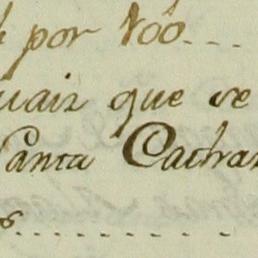 por Vóo....
uaiz que se
Santa Cathar
s..........